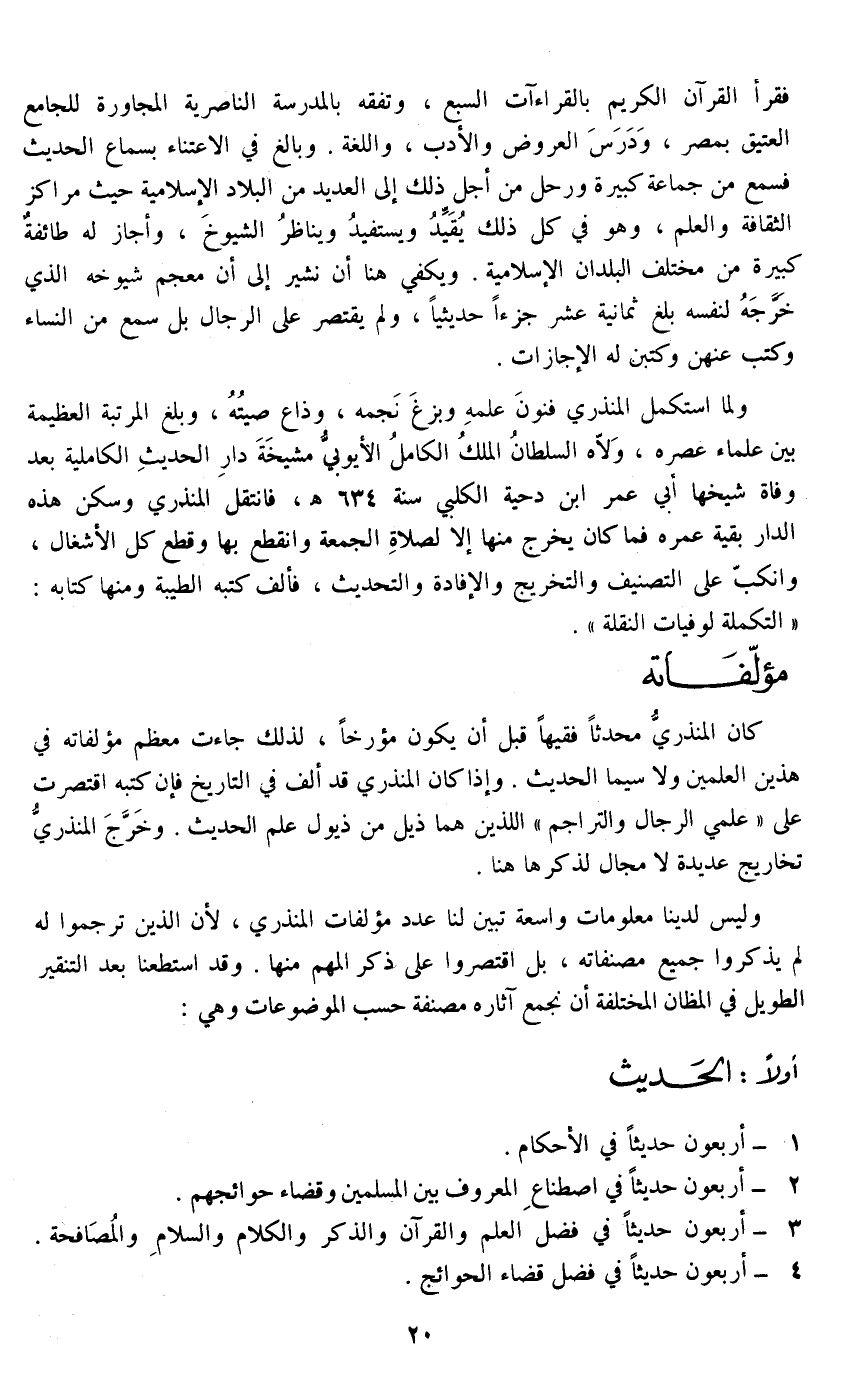 فقرأ القرآن الكريم بالقراءآت السبع ، وتفقه بالمدرسة الناصرية المجاورة للجامع
العتيق بمصر ، وَدَرَسَ العروض والأدب ، واللغة . وبالغ في الاعتناء بسماع الحديث
فسمع من جماعة كبيرة ورحل من أجل ذلك إلى العديد من البلاد الإسلامية حيث مراكز
الثقافة والعلم ، وهو في كل ذلك يُقَيِّدُ ويستفيدُ ويناظرُ الشيوخَ ، وأجاز له طائفةٌ
كبيرة من مختلف البلدان الإسلامية . ويكفي هنا أن نشير إلى أن معجم شيوخه الذي
خَرَّجَهُ لنفسه بلغ ثمانية عشر جزءاً حديثياً ، ولم يقتصر على الرجال بل سمع من النساء
وكتب عنهن وكتبن له الإجازات .
ولما استكمل المنذري فنونَ علمهِ وبزغَ نَجمه ، وذاع صيتُهُ ، وبلغ المرتبة العظيمة
بين علماء عصره ، وَلاّه السلطانُ الملكُ الكاملُ الأيوبيُّ مشيخَةَ دارِ الحديثِ الكاملية بعد
وفاة شيخها أبي عمر ابن دحية الكلبي سنة ٦٣٤ هـ ، فانتقل المنذري وسكن هذه
الدار بقية عمره فما كان يخرج منها إلا لصلاةِ الجمعة وانقطع بها وقطع كل الأشغال ،
وانكبّ على التصنيف والتخريج والإفادة والتحديث ، فألف كتبه الطيبة ومنها كتابه :
« التكملة لوفيات النقلة » .
مؤلّفَـــاته
كان المنذريُّ محدثاً فقيهاً قبل أن يكون مؤرخاً ، لذلك جاءت معظم مؤلفاته في
هذين العلمين ولا سيما الحديث . وإذا كان المنذري قد ألف في التاريخ فإن كتبه اقتصرت
على « علمي الرجال والتراجم » اللذين هما ذيل من ذيول علم الحديث . وخَرَّجَ المنذريُّ
تخاريج عديدة لا مجال لذكرها هنا .
وليس لدينا معلومات واسعة تبين لنا عدد مؤلفات المنذري ، لأن الذين ترجموا له
لم يذكروا جميع مصنفاته ، بل اقتصروا على ذكر المهم منها . وقد استطعنا بعد التنقير
الطويل في المظان المختلفة أن نجمع آثاره مصنفة حسب الموضوعات وهي :
أولاً : الحَـديث
١ ـ أربعون حديثاً في الأحكام .
٢ ـ أربعون حديثاً في اصطناعِ المعروف بين المسلمين وقضاء حوائجهم .
٣ ـ أربعون حديثاً في فضل العلم والقرآن والذكر والكلام والسلامِ والمُصَافحة .
٤ ـ أربعون حديثاً في فضل قضاء الحوائج .
٢٠